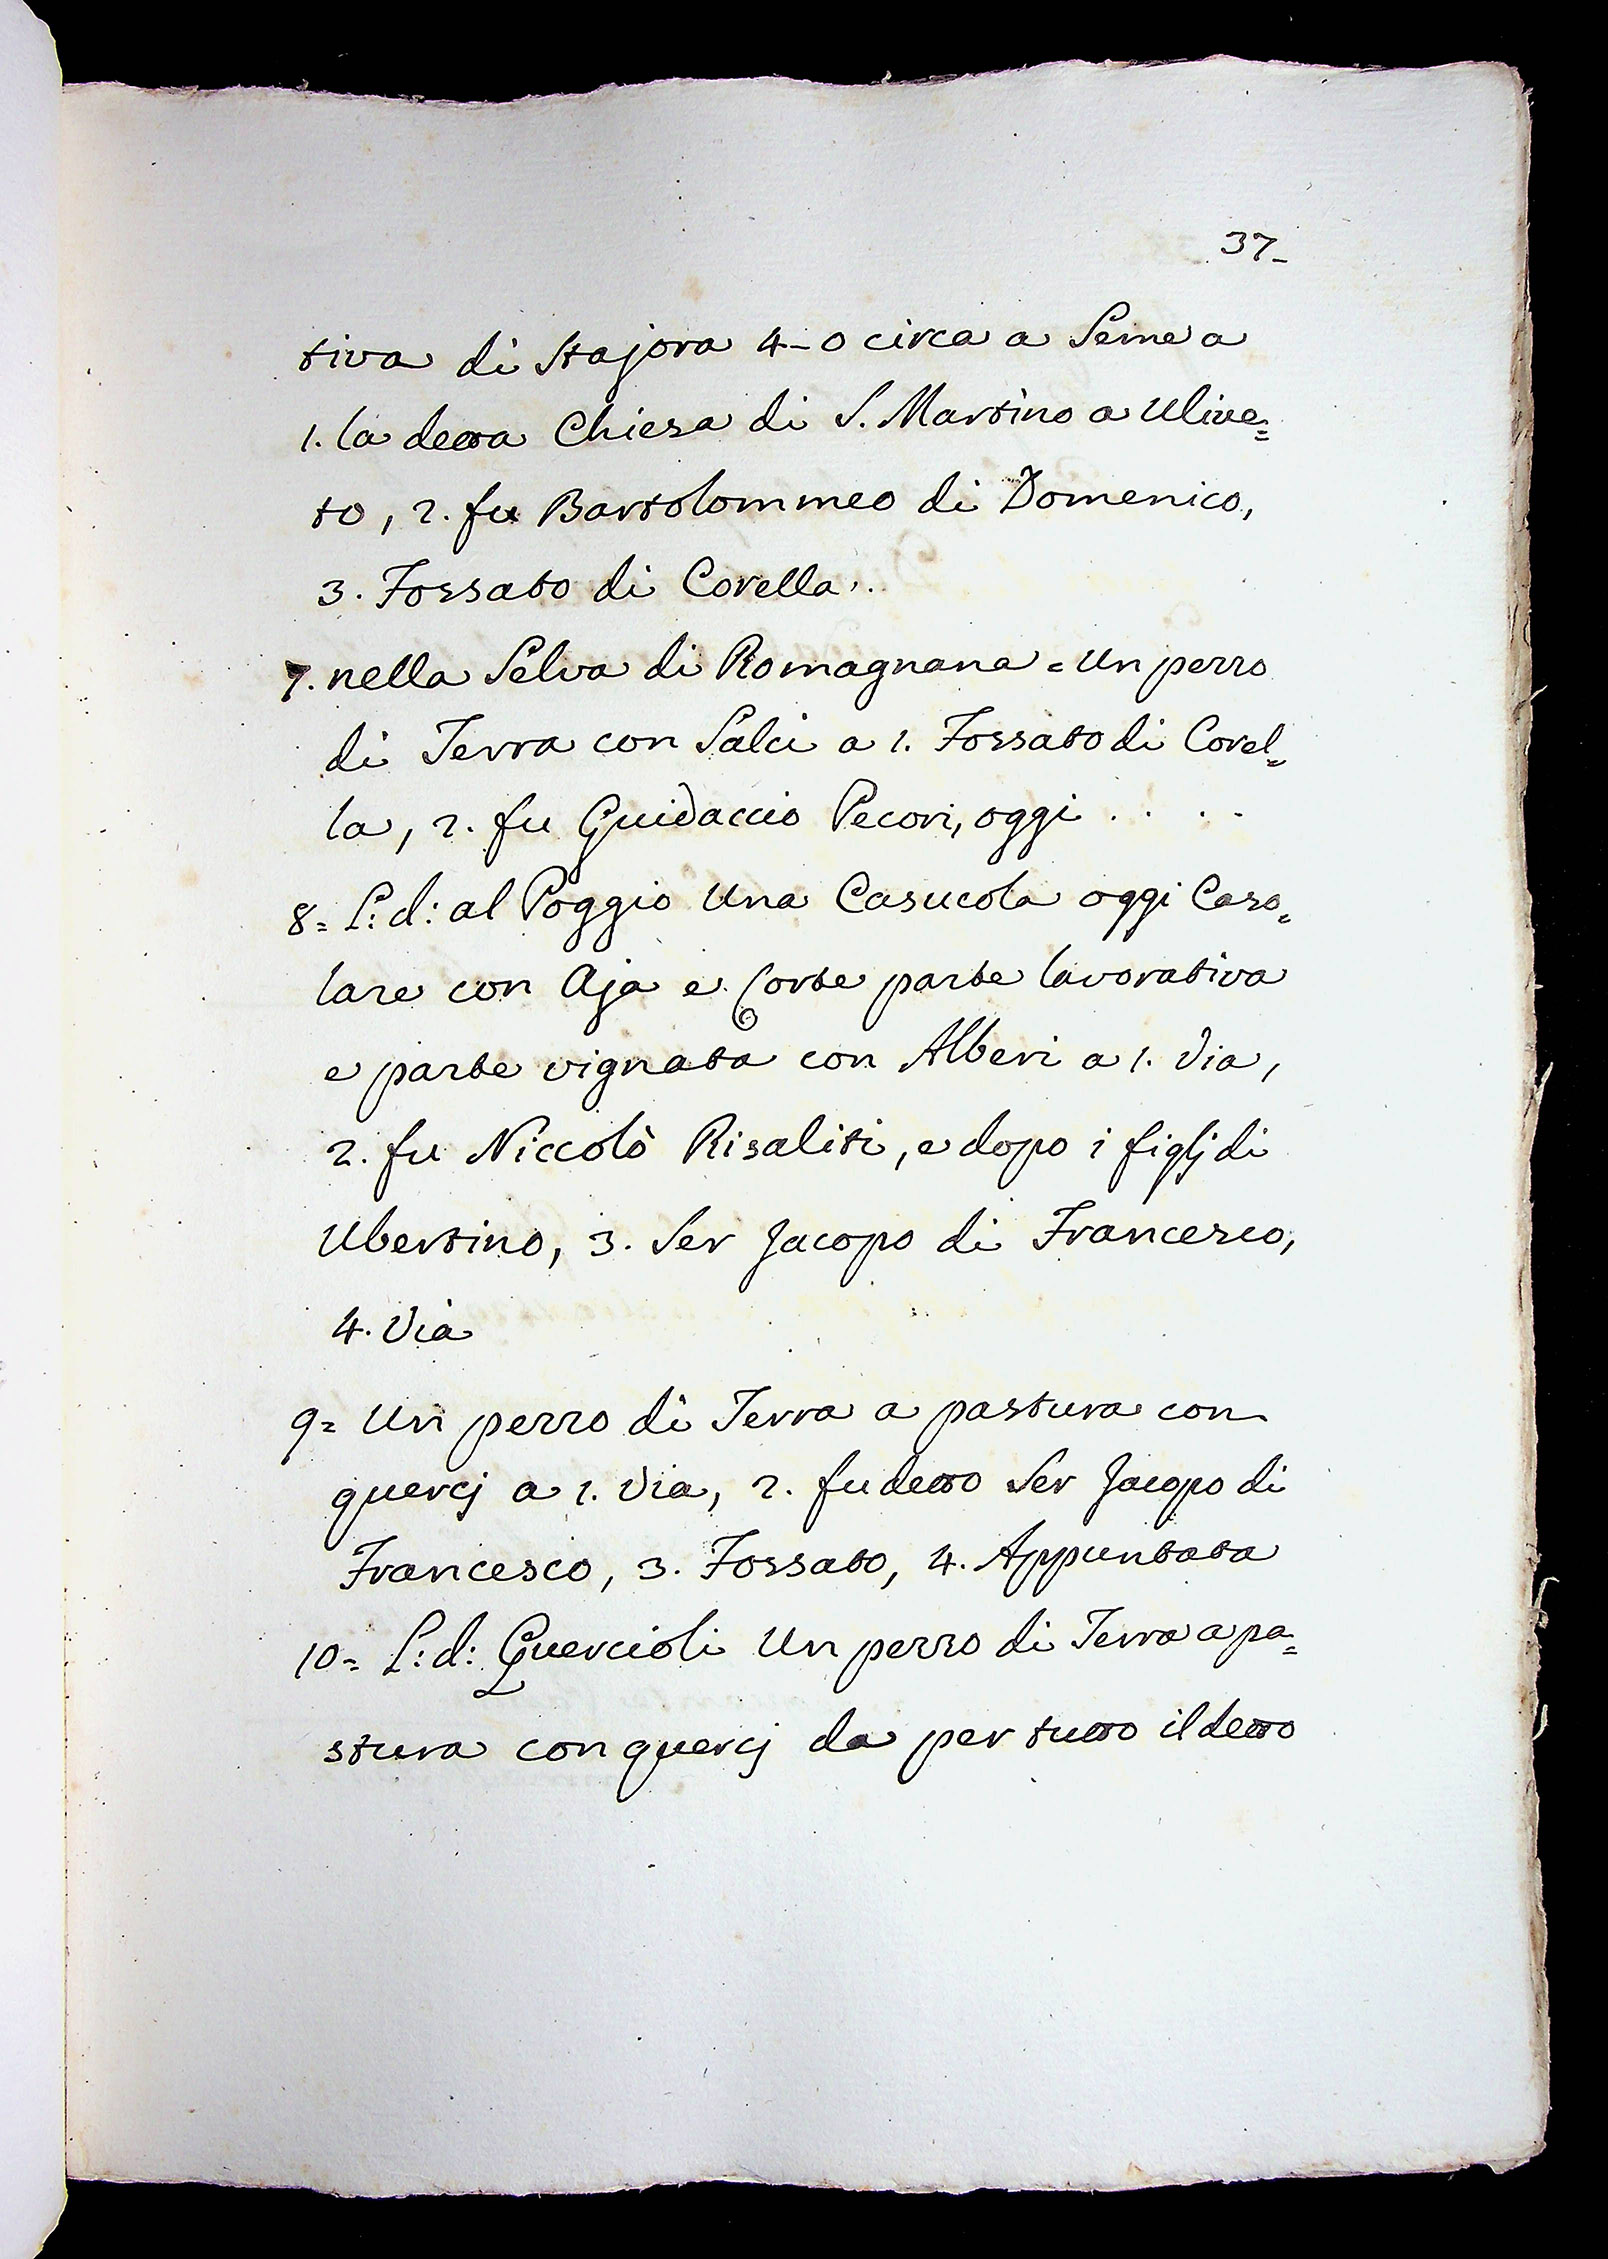 37_
tiva di Stajora 4-0 circa a Seme a
1. la detta Chiesa di S. Martino a Ulive=
to, 2. fu Bartolommeo di Domenico,
3. Fossato di Corella.
7. nella Selva di Romagnana = Un pezzo
di Terra con Salci a 1. Fossato di Corel=
la, 2. fu Guidaccio Pecori, oggi . . . .
8= L: d: al Poggio Una Casucola oggi Caso=
lare con Aja e Corte parte lavorativa
e parte vignata con Alberi a 1. Via,
2. fu Niccolò Risaliti, e dopo i figlj di
Ubertino, 3. Ser Jacopo di Francesco,
4. Via
9= Un pezzo di Terra a pastura con
quercj a 1. Via, 2. fu detto Ser Jacopo di
Francesco, 3. Fossato, 4. Appuntata
10= L: d: Quercioli Un pezzo di Terra a pa=
stura con quercj da per tutto il detto